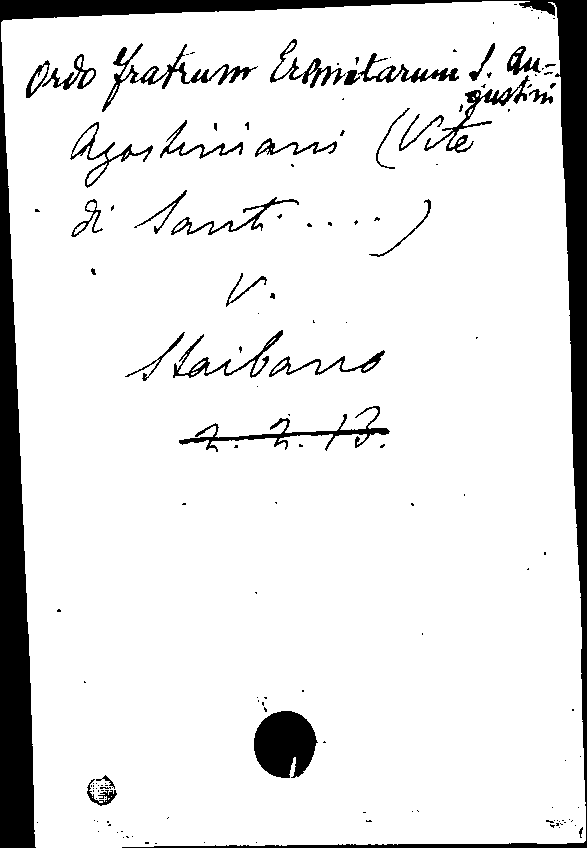 Ordo fratrum Eremitarum S. Au=
gustini
Agostiniani (Vite
di Santi ....)
V.
Staibano
2. 2. 13.